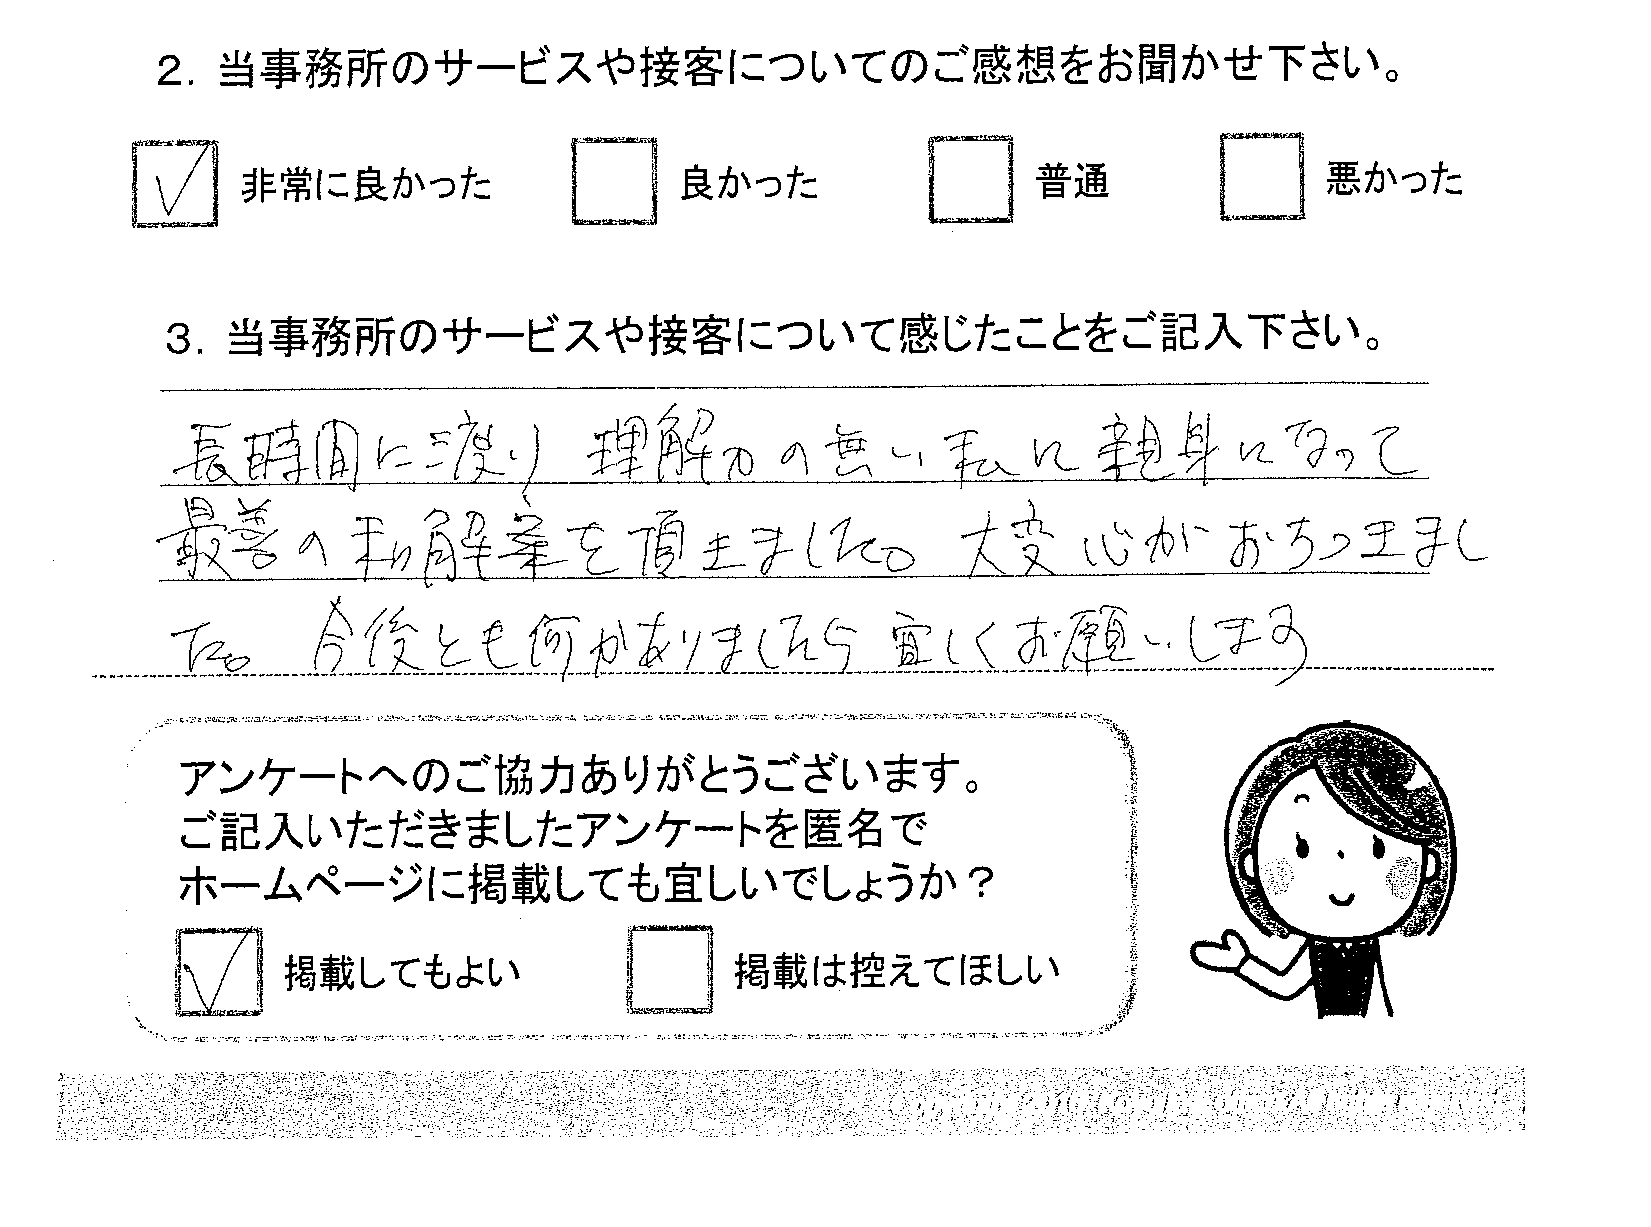 2. 当事務所のサービスや接客についてのご感想をお聞かせ下さい。
非常に良かった 良かった 普通 悪かった
3. 当事務所のサービスや接客について感じたことをご記入下さい。
長時間に渡り 理解力の無い私に親身になって
最善の 解案を頂きました。大変心がおちつきまし
た。今後とも何かありましたら宜しくお願いします
アンケートへのご協力ありがとうございます。
ご記入いただきましたアンケートを匿名で
ホームページに掲載しても宜しいでしょうか？
掲載してもよい 掲載は控えてほしい